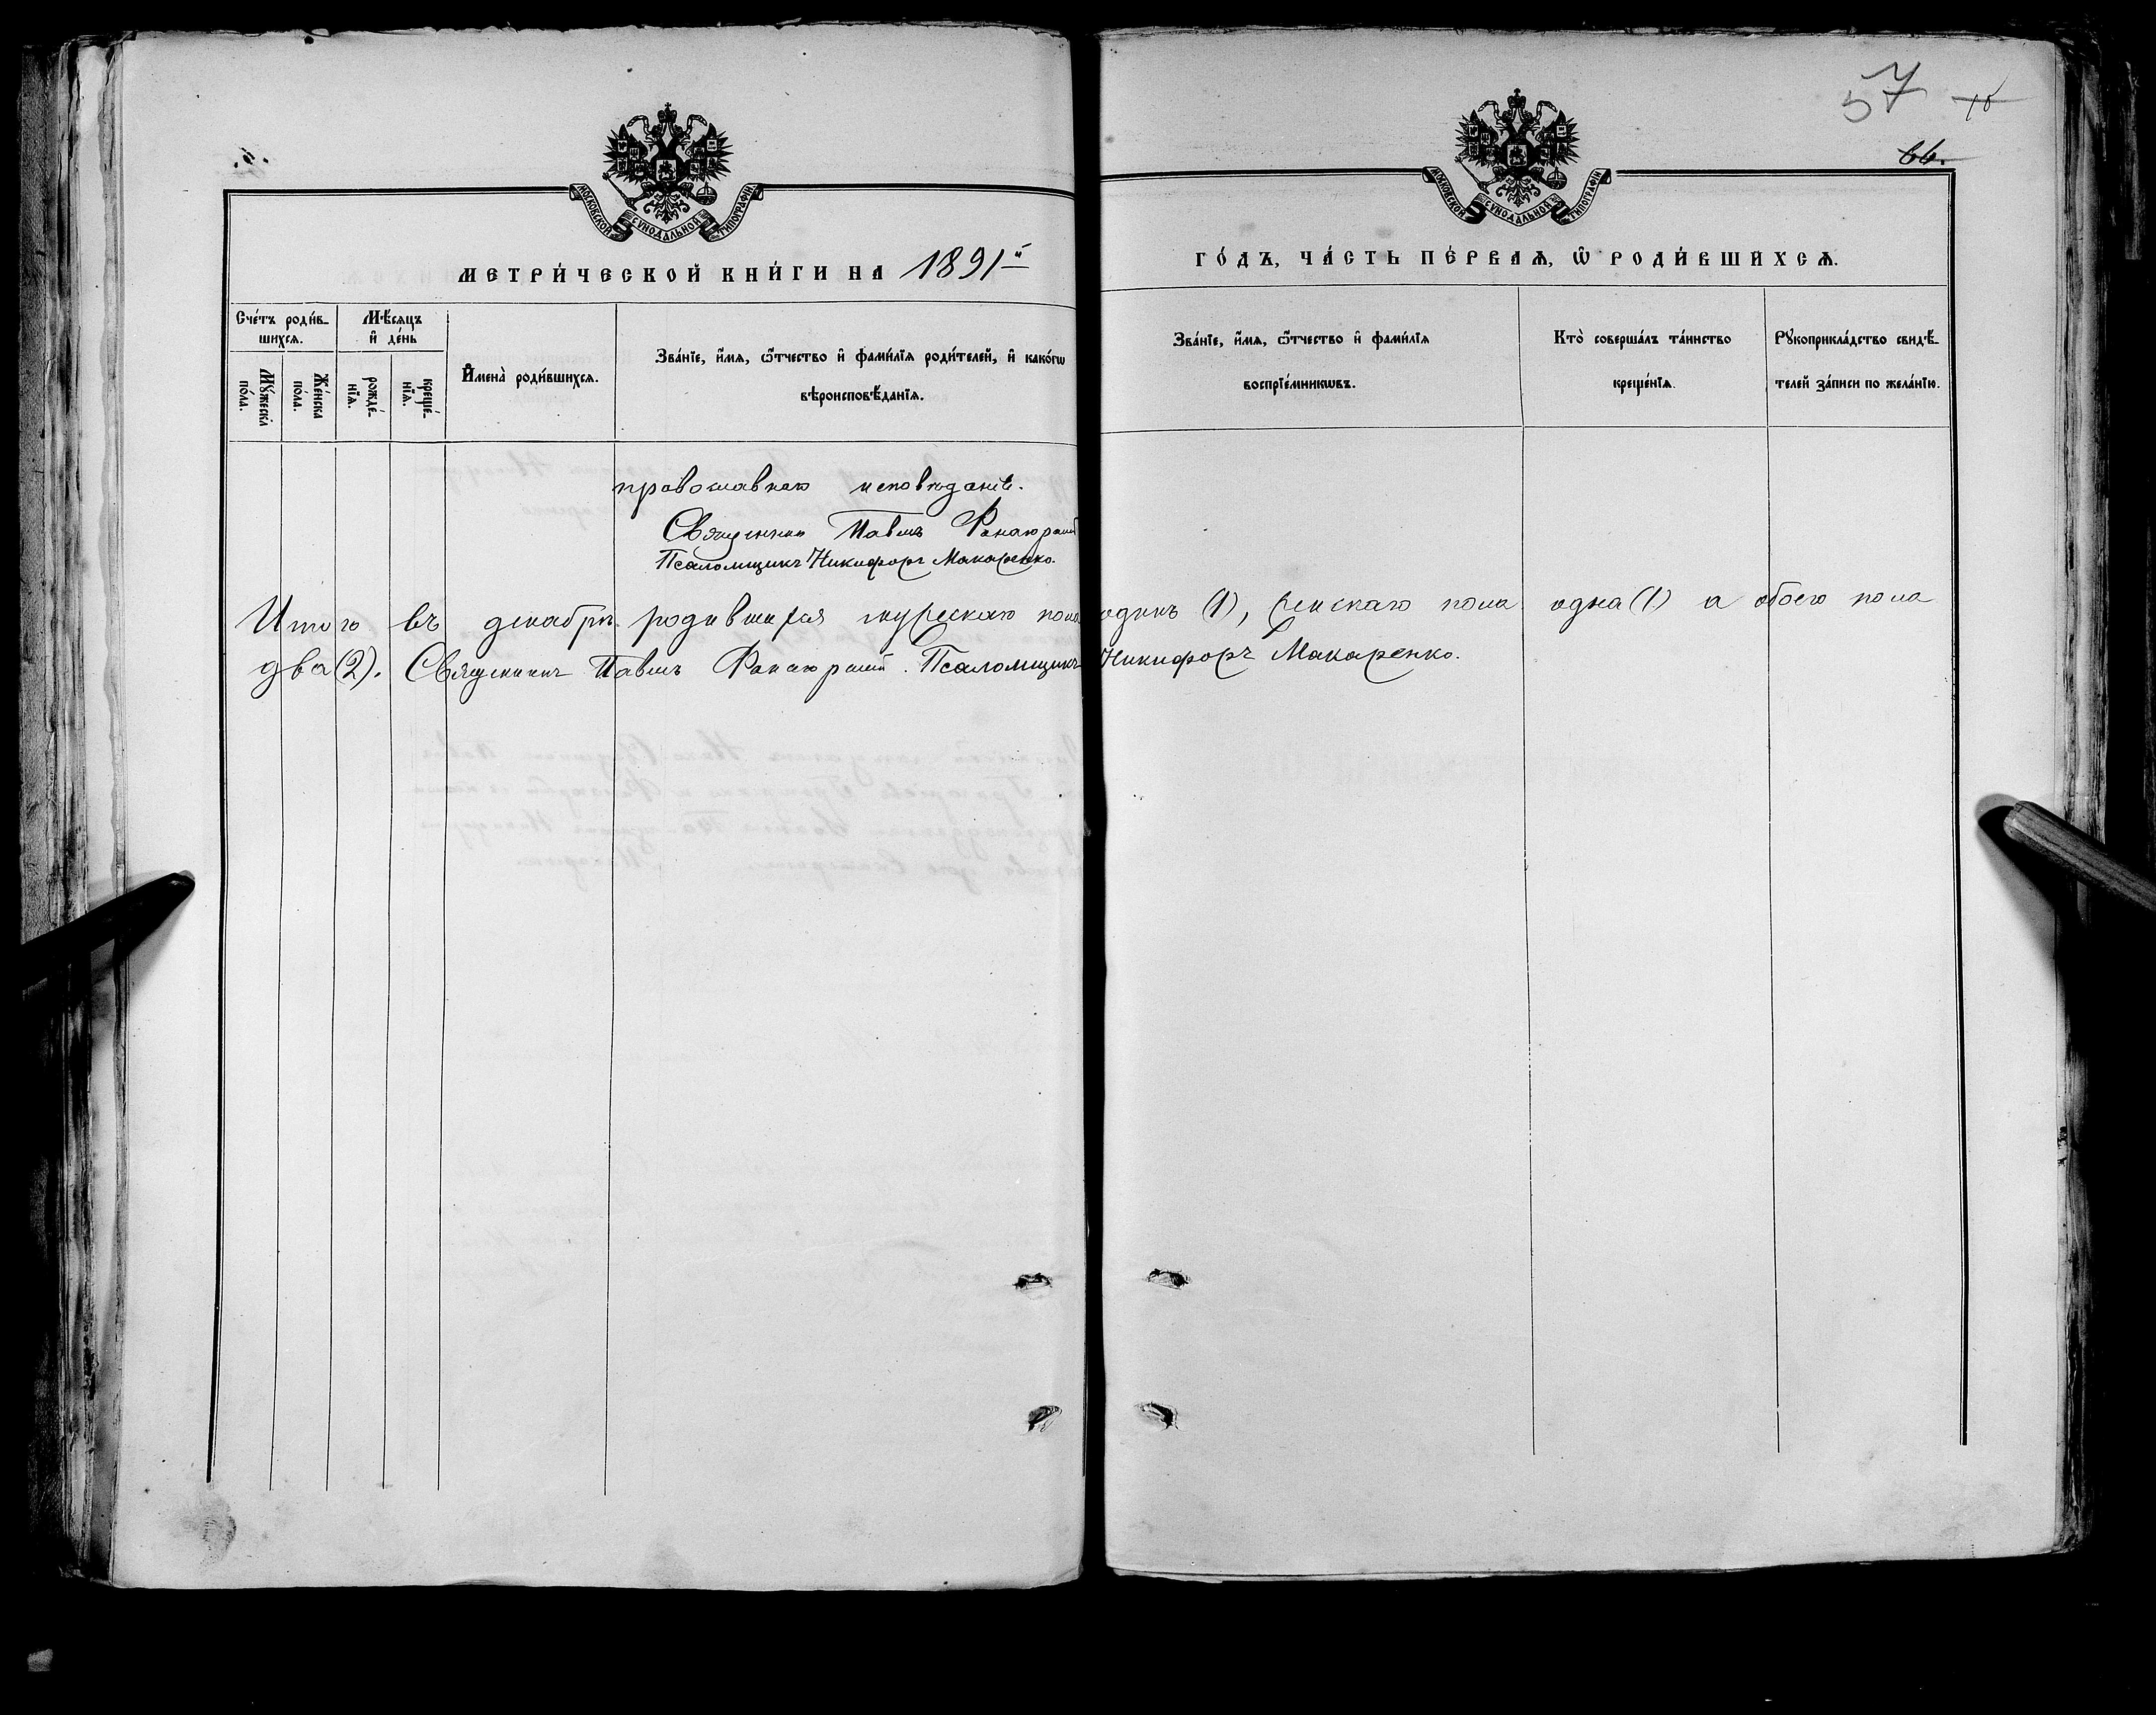 57
66.
МОСКОВСКОЙ СѴНОДАЛЬНОЙ ТИПОГРАФІИ
МОСКОВСКОЙ СѴНОДАЛЬНОЙ ТИПОГРАФІИ
МЕТРИ́ЧЕСКОЙ КНИ́ГИ НА 1891й ГО́ДЪ, ЧА́СТЬ ПЕ́РВАѦ, Ѡ҆ РОДИ́ВШИХСѦ.
Сче́тъ роди́в-
шихсѧ.
Мꙋ́жеска по́ла.
Же́нска по́ла.
Мѣ́сѧцъ
и҆ де́нь
рожде́-
нїѧ.
креще́-
нїѧ.
И҆мена̀ роди́вшихсѧ.
Зва́нїе, и҆́мѧ, ѻ҆́тчество и҆ фами́лїѧ роди́телей, и҆ како́гѡ
вѣроисповѣ́данїѧ.
Зва́нїе, и҆́мѧ, ѻ҆́тчество и҆ фами́лїѧ
воспрїе́мникѡвъ.
Кто̀ соверша́лъ та́инство
креще́нїѧ.
Рꙋкоприкла́дство свидѣ́-
телей за́писи по жела́нїю.
православнаго исповѣданія.
Священникъ Павелъ
Псаломщикъ Никифоръ Макаренко.
Итого въ декабрѣ родившихся мужескаго пола одинъ (1), женскаго пола одна (1) а обоего пола
два (2). Священникъ Павелъ Псаломщикъ Никифоръ Макаренко.